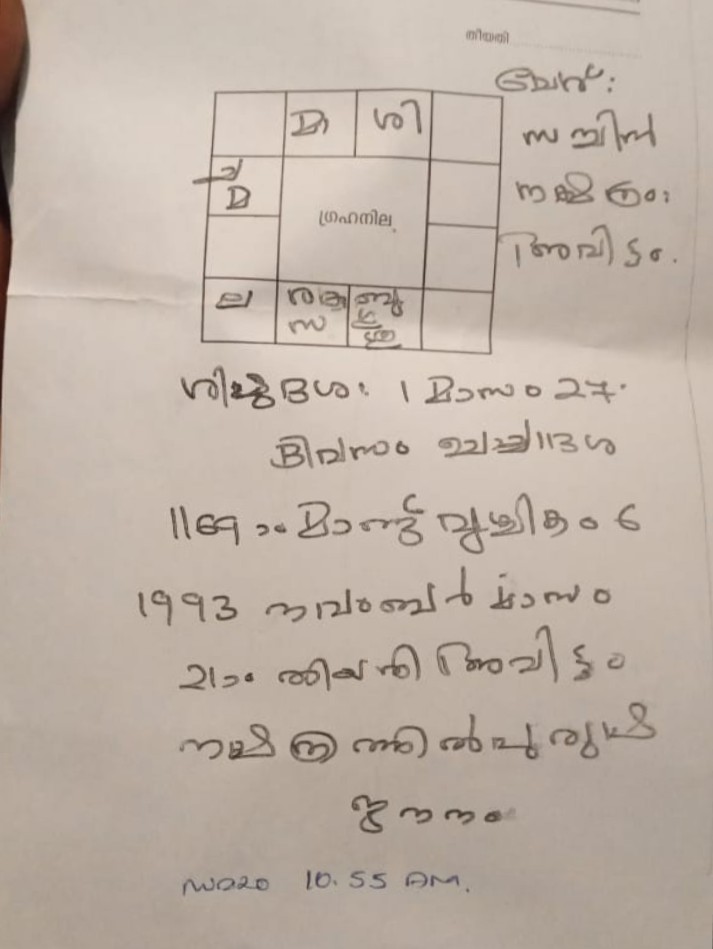 തീയതി
പേര്:
സച്ചിൻ
നക്ഷത്രം:
അവിട്ടം.
മ ശി
ച
മ
ഗ്രഹനില
ല
സ
ബു
ശിഷ്ട ദശ: 1 മാസം 27
ദിവസം
1169 ാം മാണ്ട് വൃശ്ചികം 6
1993 നവംബർ മാസം
21ാം തിയതി അവിട്ടം
നക്ഷത്രത്തിൽ പുരുഷ
ജനനം
സമയം 10.55 AM.